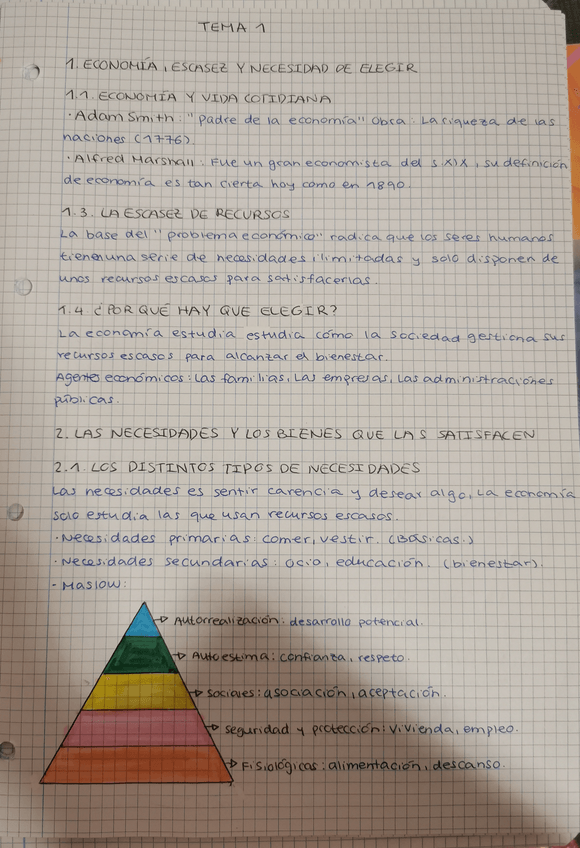 TEMA 1
1. ECONOMÍA, ESCASEZ Y NECESIDAD DE ELEGIR
1.1. ECONOMÍA Y VIDA COTIDIANA
· Adam Smith: "padre de la economía" Obra: La riqueza de las
naciones (1776).
· Alfred Marshall: Fue un gran economista del s XIX, su definición
de economía es tan cierta hoy como en 1890.
1.3. LA ESCASEZ DE RECURSOS
La base del "problema económico" radica que los seres humanos
tienen una serie de necesidades ilimitadas y solo disponen de
unos recursos escasos para satisfacerlas.
1.4 ¿POR QUÉ HAY QUE ELEGIR?
La economía estudia estudia cómo la sociedad gestiona sus
recursos escasos para alcanzar el bienestar.
Agentes económicos: Las familias, Las empresas, Las administraciones
públicas.
2. LAS NECESIDADES Y LOS BIENES QUE LAS SATISFACEN
2.1. LOS DISTINTOS TIPOS DE NECESIDADES
Las necesidades es sentir carencia y desear algo, La economía
solo estudia las que usan recursos escasos.
· Necesidades primarias: comer, vestir. (Básicas.)
· Necesidades secundarias: ocio, educación. (bienestar).
- Maslow:
→ Autorrealización: desarrollo potencial.
→ Autoestima: confianza, respeto.
→ Sociales: asociación, aceptación.
→ Seguridad y protección: vivienda, empleo.
→ Fisiológicas: alimentación, descanso.